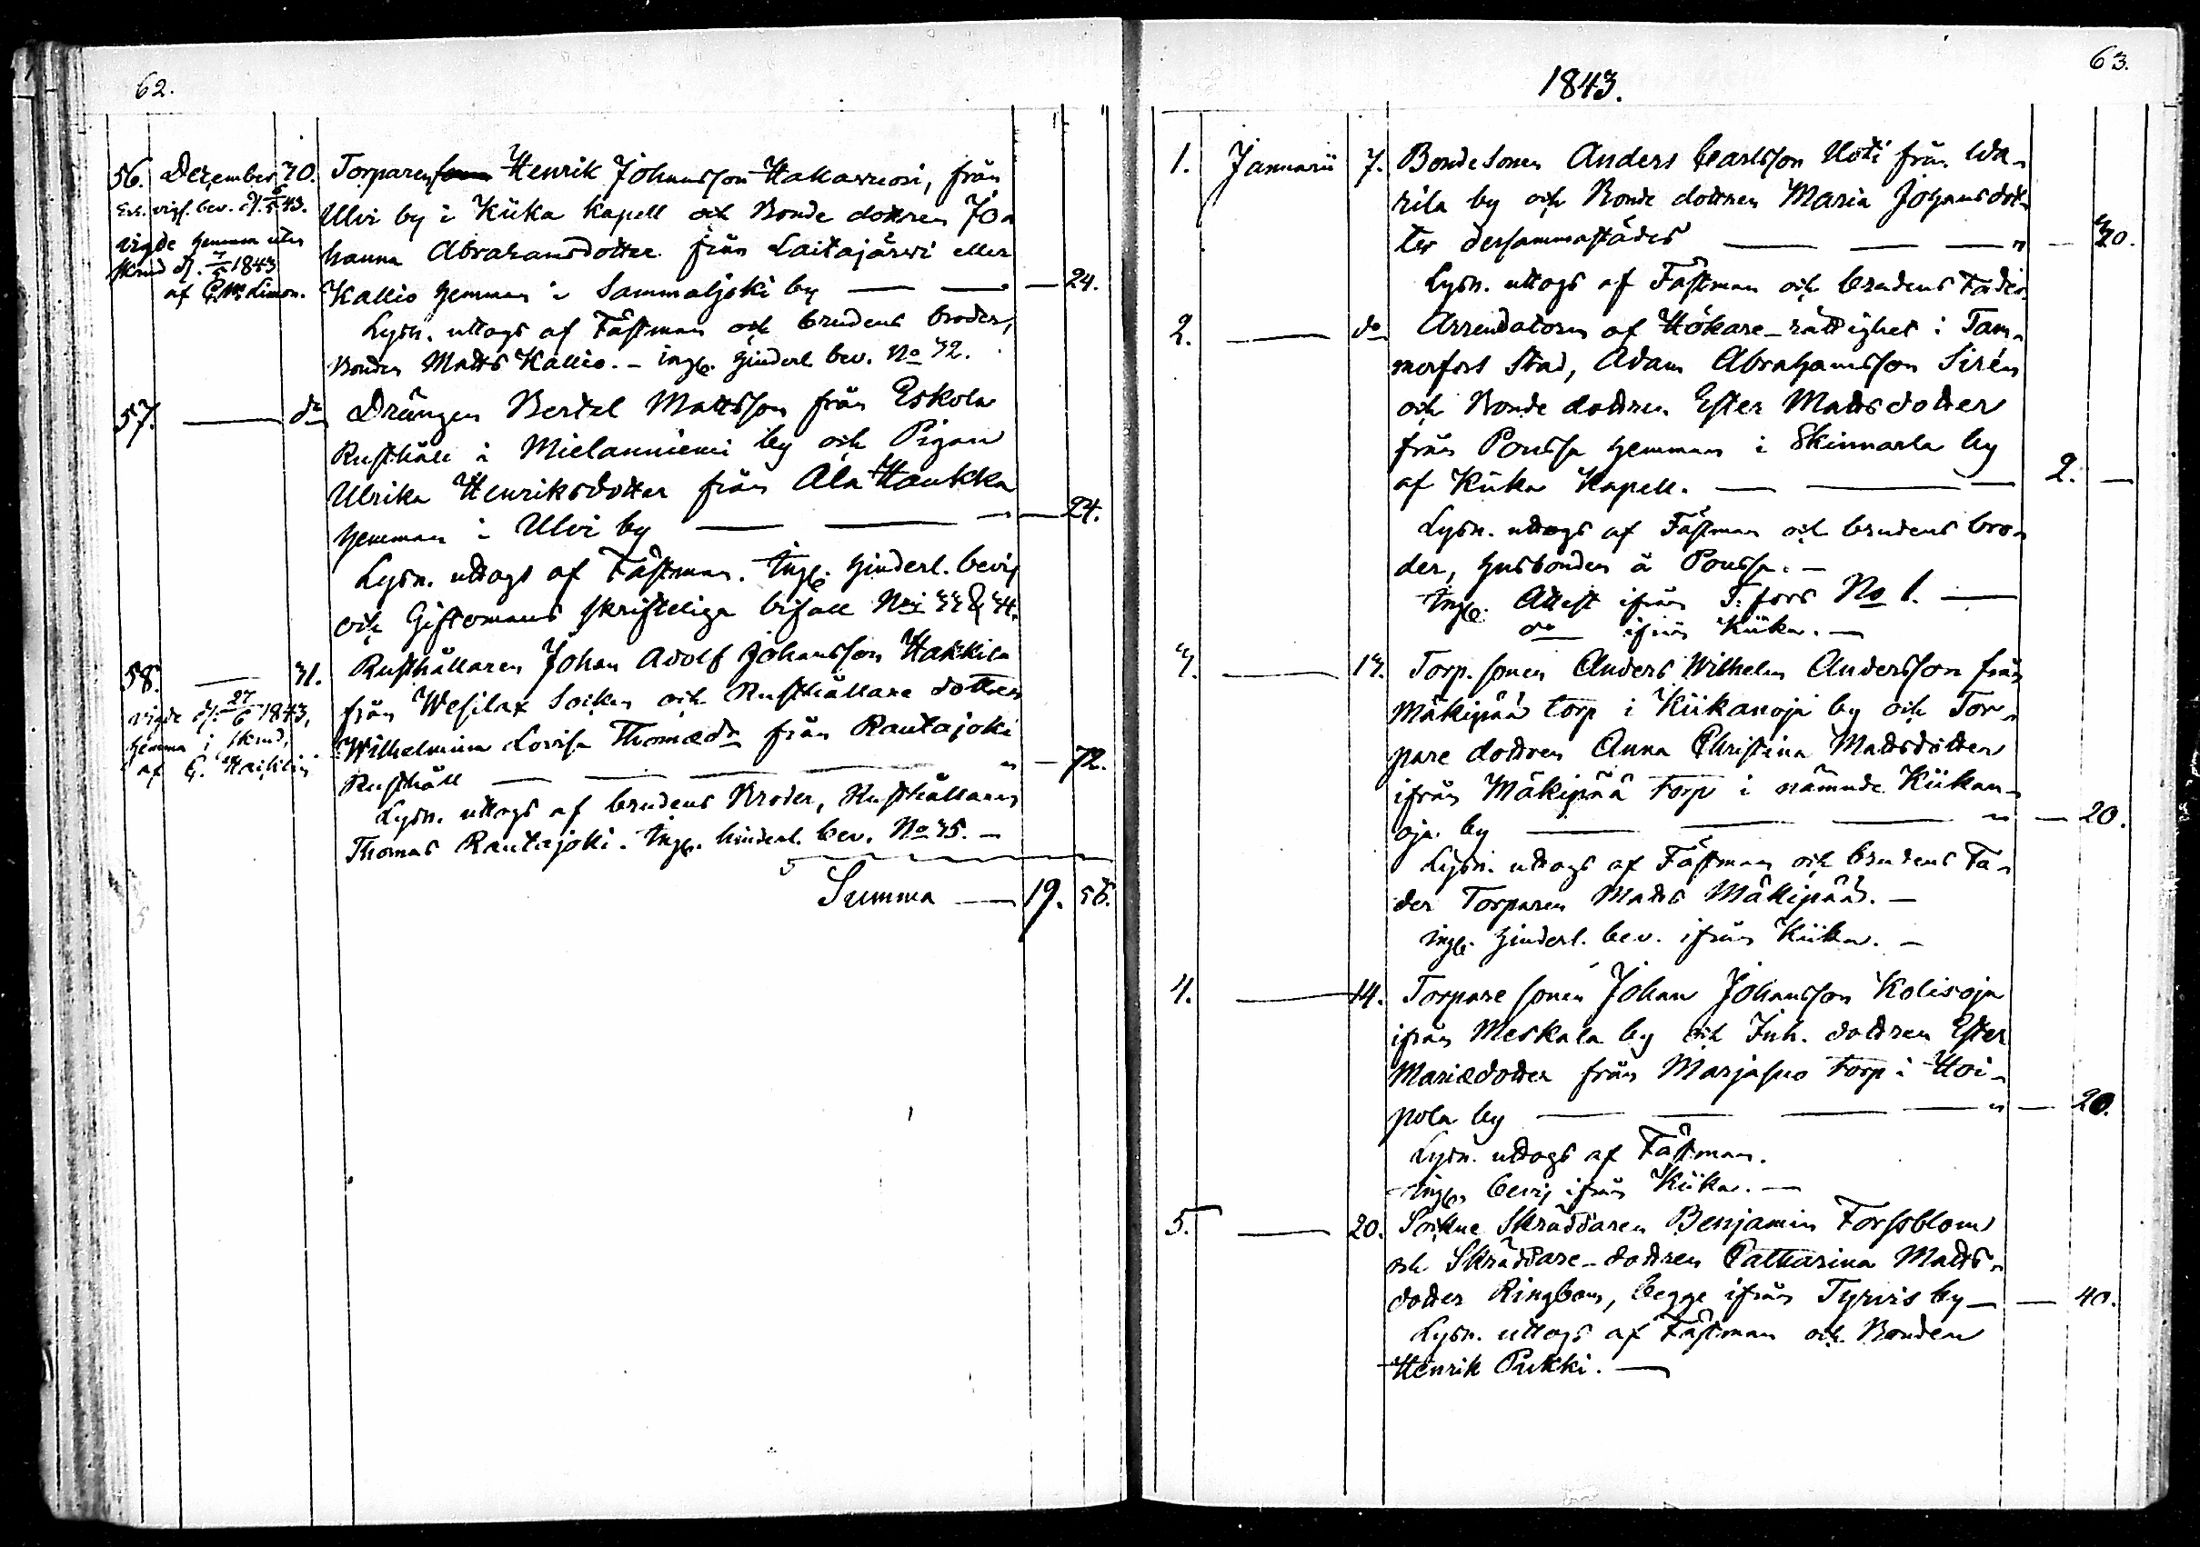 62.
56. December 30. Torparen Henrik Johansson Hakavuori, från
Ulvi by i Kiika Kapell och Bonde dottren Jo-
hanna Abrahamsdotter från Laitajärvi eller
Kallio hemman i Sammaljoki by — — — 24.
Lysn. uttogs af Fästman och brudens broder,
Bonden Matts Kallio. – Ingl. hinderl. bev. No 32.
vigde hemma utan
skrud d. 1843
af
57. — do Drängen Bertel Mattsson från Eskola
Rusthåll i Mielanniemi by och Pigan
Ulrika Henriksdotter från Ala Haukka
hemman i Ulvi by — — — 24.
Lysn. uttogs af Fästman. Ingl. hinderl. bevis
och Giftomans skrifteliga bifall Nri 33 & 34.
58. — 31. Rusthållaren Johan Adolf Johansson Hakkila
från Wesilax Socken och Rusthållare dotter
Wilhelmina Lovisa Thomædr från Rautajoki
Rusthåll — — — 72.
Lysn. uttogs af brudens Broder, Rusthållaren
Thomas Rautajoki. Ingl. hinderl. bev. No 35. –
vigde d. 27/6 1843,
hemma i skrud,
af G.
Summa — 19. 56.
63.
1843.
1. Januarii 7. Bondesonen Anders Carlsson Uoti från Wa-
rila by och Bonde dottren Maria Johansdot-
ter dersammastädes — — — 20.
Lysn. uttogs af Fästman och brudens Fader
2. — do Arrendatorn af Hökare-rättighet i Tam-
merfors Stad, Adam Abrahamsson Sirén
och Bonde dottren Ester Mattsdotter
från Poussa hemman i Skinnarla by
af Kiika Kapell. — — — 2. —
Lysn. uttogs af Fästman och brudens bro-
der, husbonden å Poussa. –
Ingl. Attest ifrån T:fors No 1. —
do ifrån Kiika. —
3. — 13. Torp. sonen Anders Wilhelm Andersson från
Mäkipää torp i Kiikanoja by och Tor-
pare dottren Anna Christina Mattsdotter
ifrån Mäkipää torp i nämnde Kiikan-
oja by — — — 20.
Lysn. uttogs af Fästman och brudens Fa-
der Torparen Matts Mäkipää. –
Ingl. hinderl. bev. ifrån Kiika. –
4. — 14. Torpare sonen Johan Johansson Kolisoja
ifrån Meskala by och Inh. dottren Ester
Mariædotter från Marjasuo torp i Hoi-
pola by — — — 20.
Lysn. uttogs af Fästman.
Ingl. bevis ifrån Kiika. —
5. — 20. Sockne Skräddaren Benjamin Forssblom
och Skräddare-dottren Catharina Matts-
dotter Ringbom, begge ifrån Tyrvis by — — 40.
Lysn. uttogs af Fästman och Bonden
Henrik Pukki. —